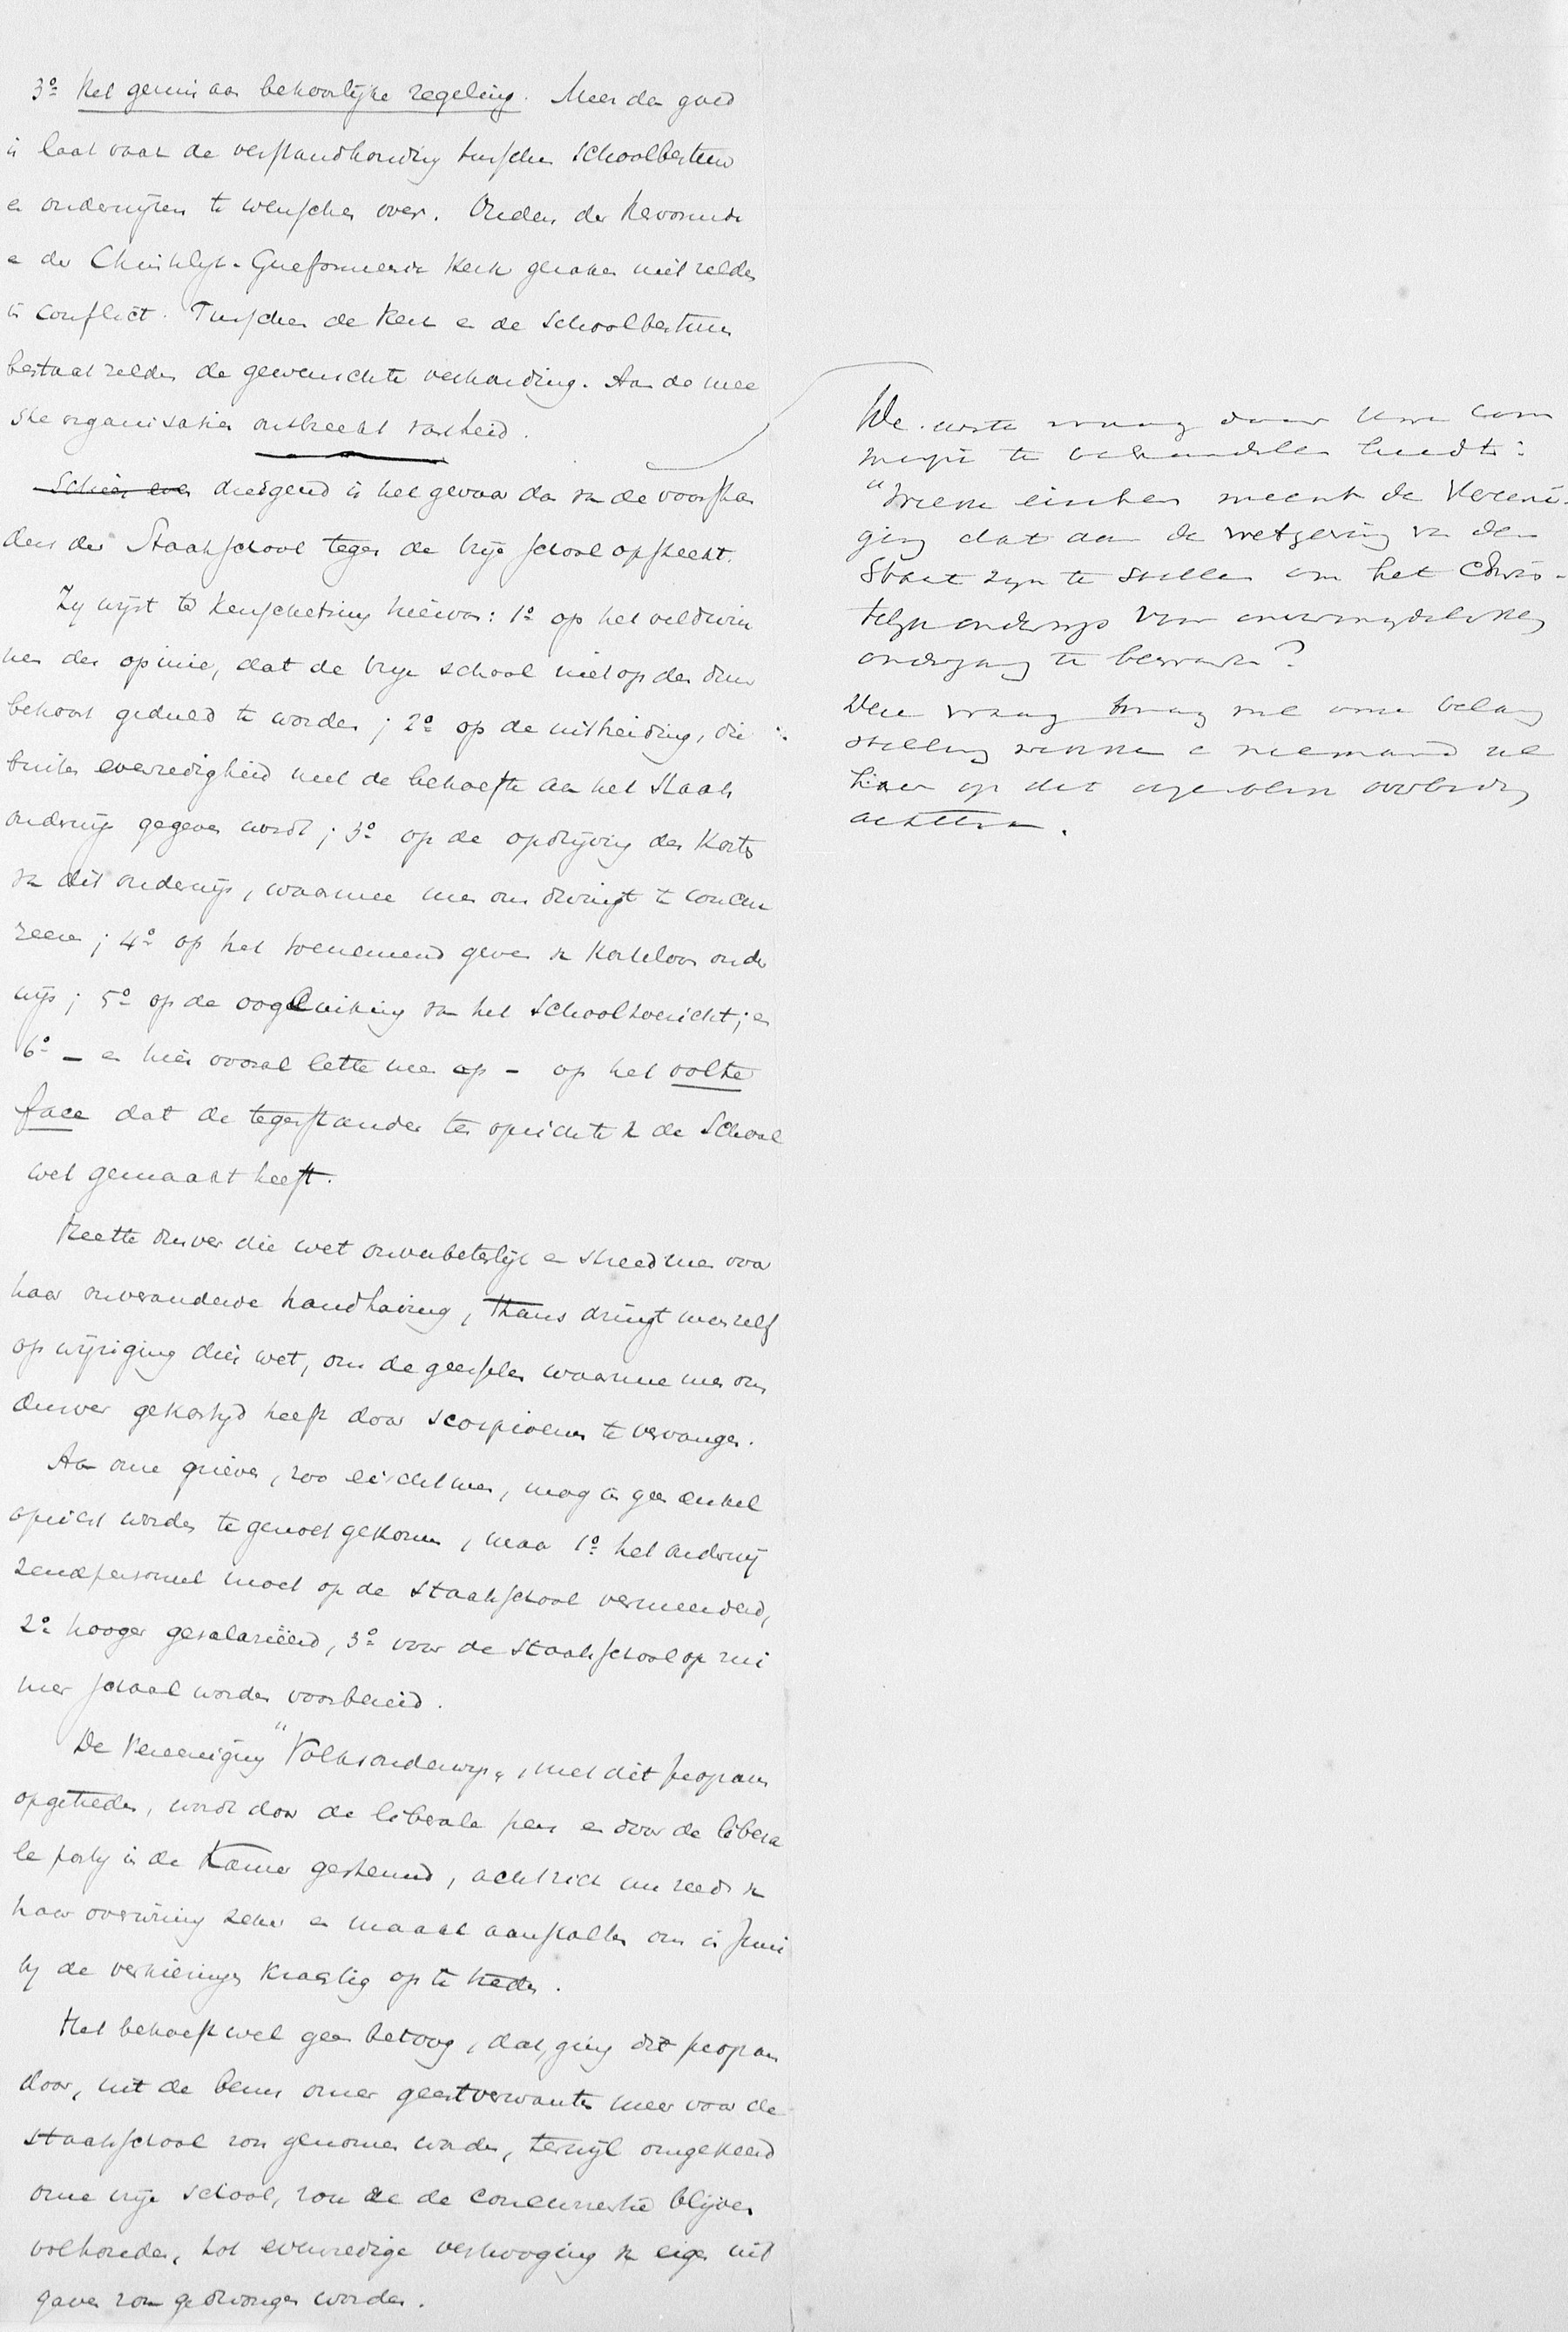 3º Het gemis aan behoorlijke regeling. Meer dan goed
is laat vaak de verstandhouding tusschen schoolbestuur
en onderwijzers te wenschen over. Ouders der Hervormde
en der Christelijk-Gereformeerde Kerk geraken niet zelden
in conflict. Tusschen de Kerk en de Schoolbesturen
bestaat zelden de gewenschte verhouding. Aan de mee
ste organisatien ontbreekt vastheid.
dreigend is het gevaar dat van de voorstan
ders der Staatsschool tegen de vrije school opsteekt.
Zij wijst ter kenschetsing hiervan: 1º op het veldwin
nen der opinie, dat de vrije school niet op den duur
behoort geduld te worden; 2º op de uitbreiding, die
buiten evenredigheid met de behoefte aan het Staats
onderwijs gegeven wordt; 3º op de opdrijving der Kosten
van dit onderwijs, waarmee men ons dwingt te concur
reeren; 4º op het toenemend geven van Kosteloos onder
wijs; 5º op de oogluiking van het Schooltoezicht; en
6º – en hier vooral lette men op – op het volte
face dat de tegenstander ten opzichte van de School
wet gemaakt heeft.
Heette dusver die wet onverbeterlijk en streed men voor
haar onveranderde handhaving, thans dringt men zelf
op wijziging dier wet, om de geesselen waarmee men ons
dusver gekastijd heeft door scorpioenen te vervangen.
Aan onze grieven, zoo eischt men, mag in geen enkel
opzicht worden te gemoet gekomen, maar 1º het onderwij
zend personeel moet op de Staatsschool vermeerderd,
2º hooger gesalariëerd, 3º voor de Staatsschool op rui
mer schaal worden voorbereid.
De Vereeniging "Volksonderwijs", met dit program
opgetreden, wordt door de liberale pers en door de libera
le partij in de Kamer gesteund, acht zich nu reeds van
haar overwinning zeker en maakt aanstalten om in Juni
bij de verkiezingen krachtig op te treden.
Het behoeft wel geen betoog, dat, ging dit program
door, uit de beurs onzer geestverwanten meer voor de
Staatsschool zou genomen worden, terwijl omgekeerd
onze vrije school, zou ze de concurrentie blijven
volhouden, tot evenredige verhooging van eigen uit
gaven zou gedwongen worden.
De eerste vraag door Uwe Com
missie te behandelen luidt:
"Welke eischen meent de Vereeni-
ging dat aan de wetgeving van den
Staat zijn te stellen om het Chris-
telijk onderwijs voor onvermijdelijken
ondergang te bewaren?
Deze vraag mag wel onze belang
stelling wekken en niemand zal
haar op dit oogenblik overbodig
achten.